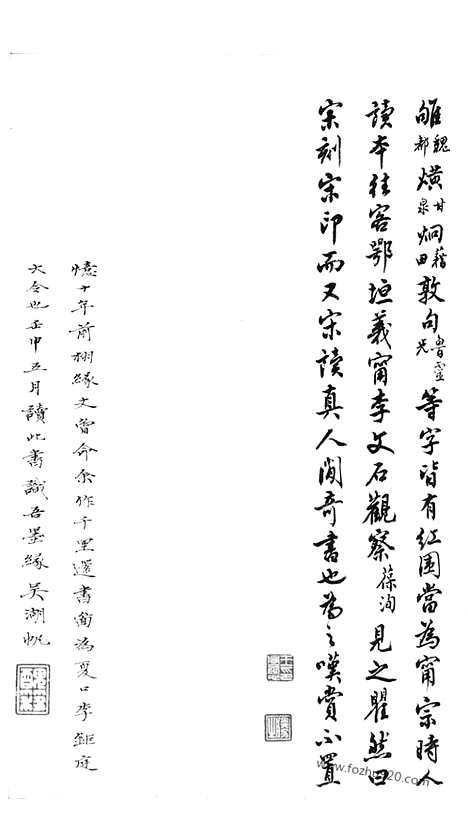 雊魏都熿甘泉炯藉田敦句魯靈光等字皆有红圈當為甯宗時人
讀本往客鄂垣義甯李文石觀察葆洵見之瞿然曰
宋刻宋印而又宋讀真人間奇書也為之嘆賞不置
憶十年前栩緣丈曾命余作千里還書圖為夏口李鉅庭
大令也壬申五月讀此書識吾墨緣吴湖帆
www.fozhu920.com